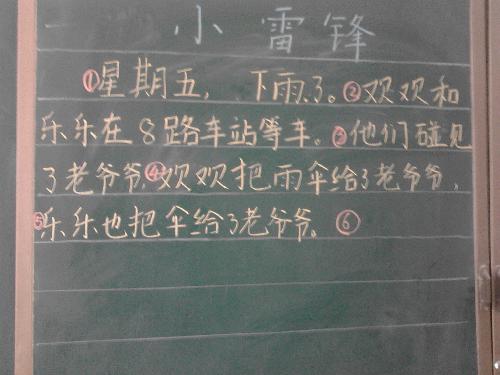 小雷锋
①星期五，下雨了。②欢欢和
乐乐在8路车站等车。③他们碰见
了老爷爷，④欢欢把雨伞给了老爷爷，
⑤乐乐也把伞给了老爷爷。⑥